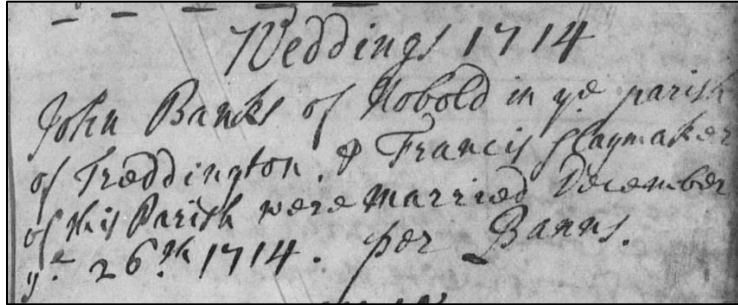 Weddings 1714
John Banks of Nobold in ye parish
of Treddington. & Francis Slaymaker
of this Parish were Married December
ye 26th 1714. per Banns.